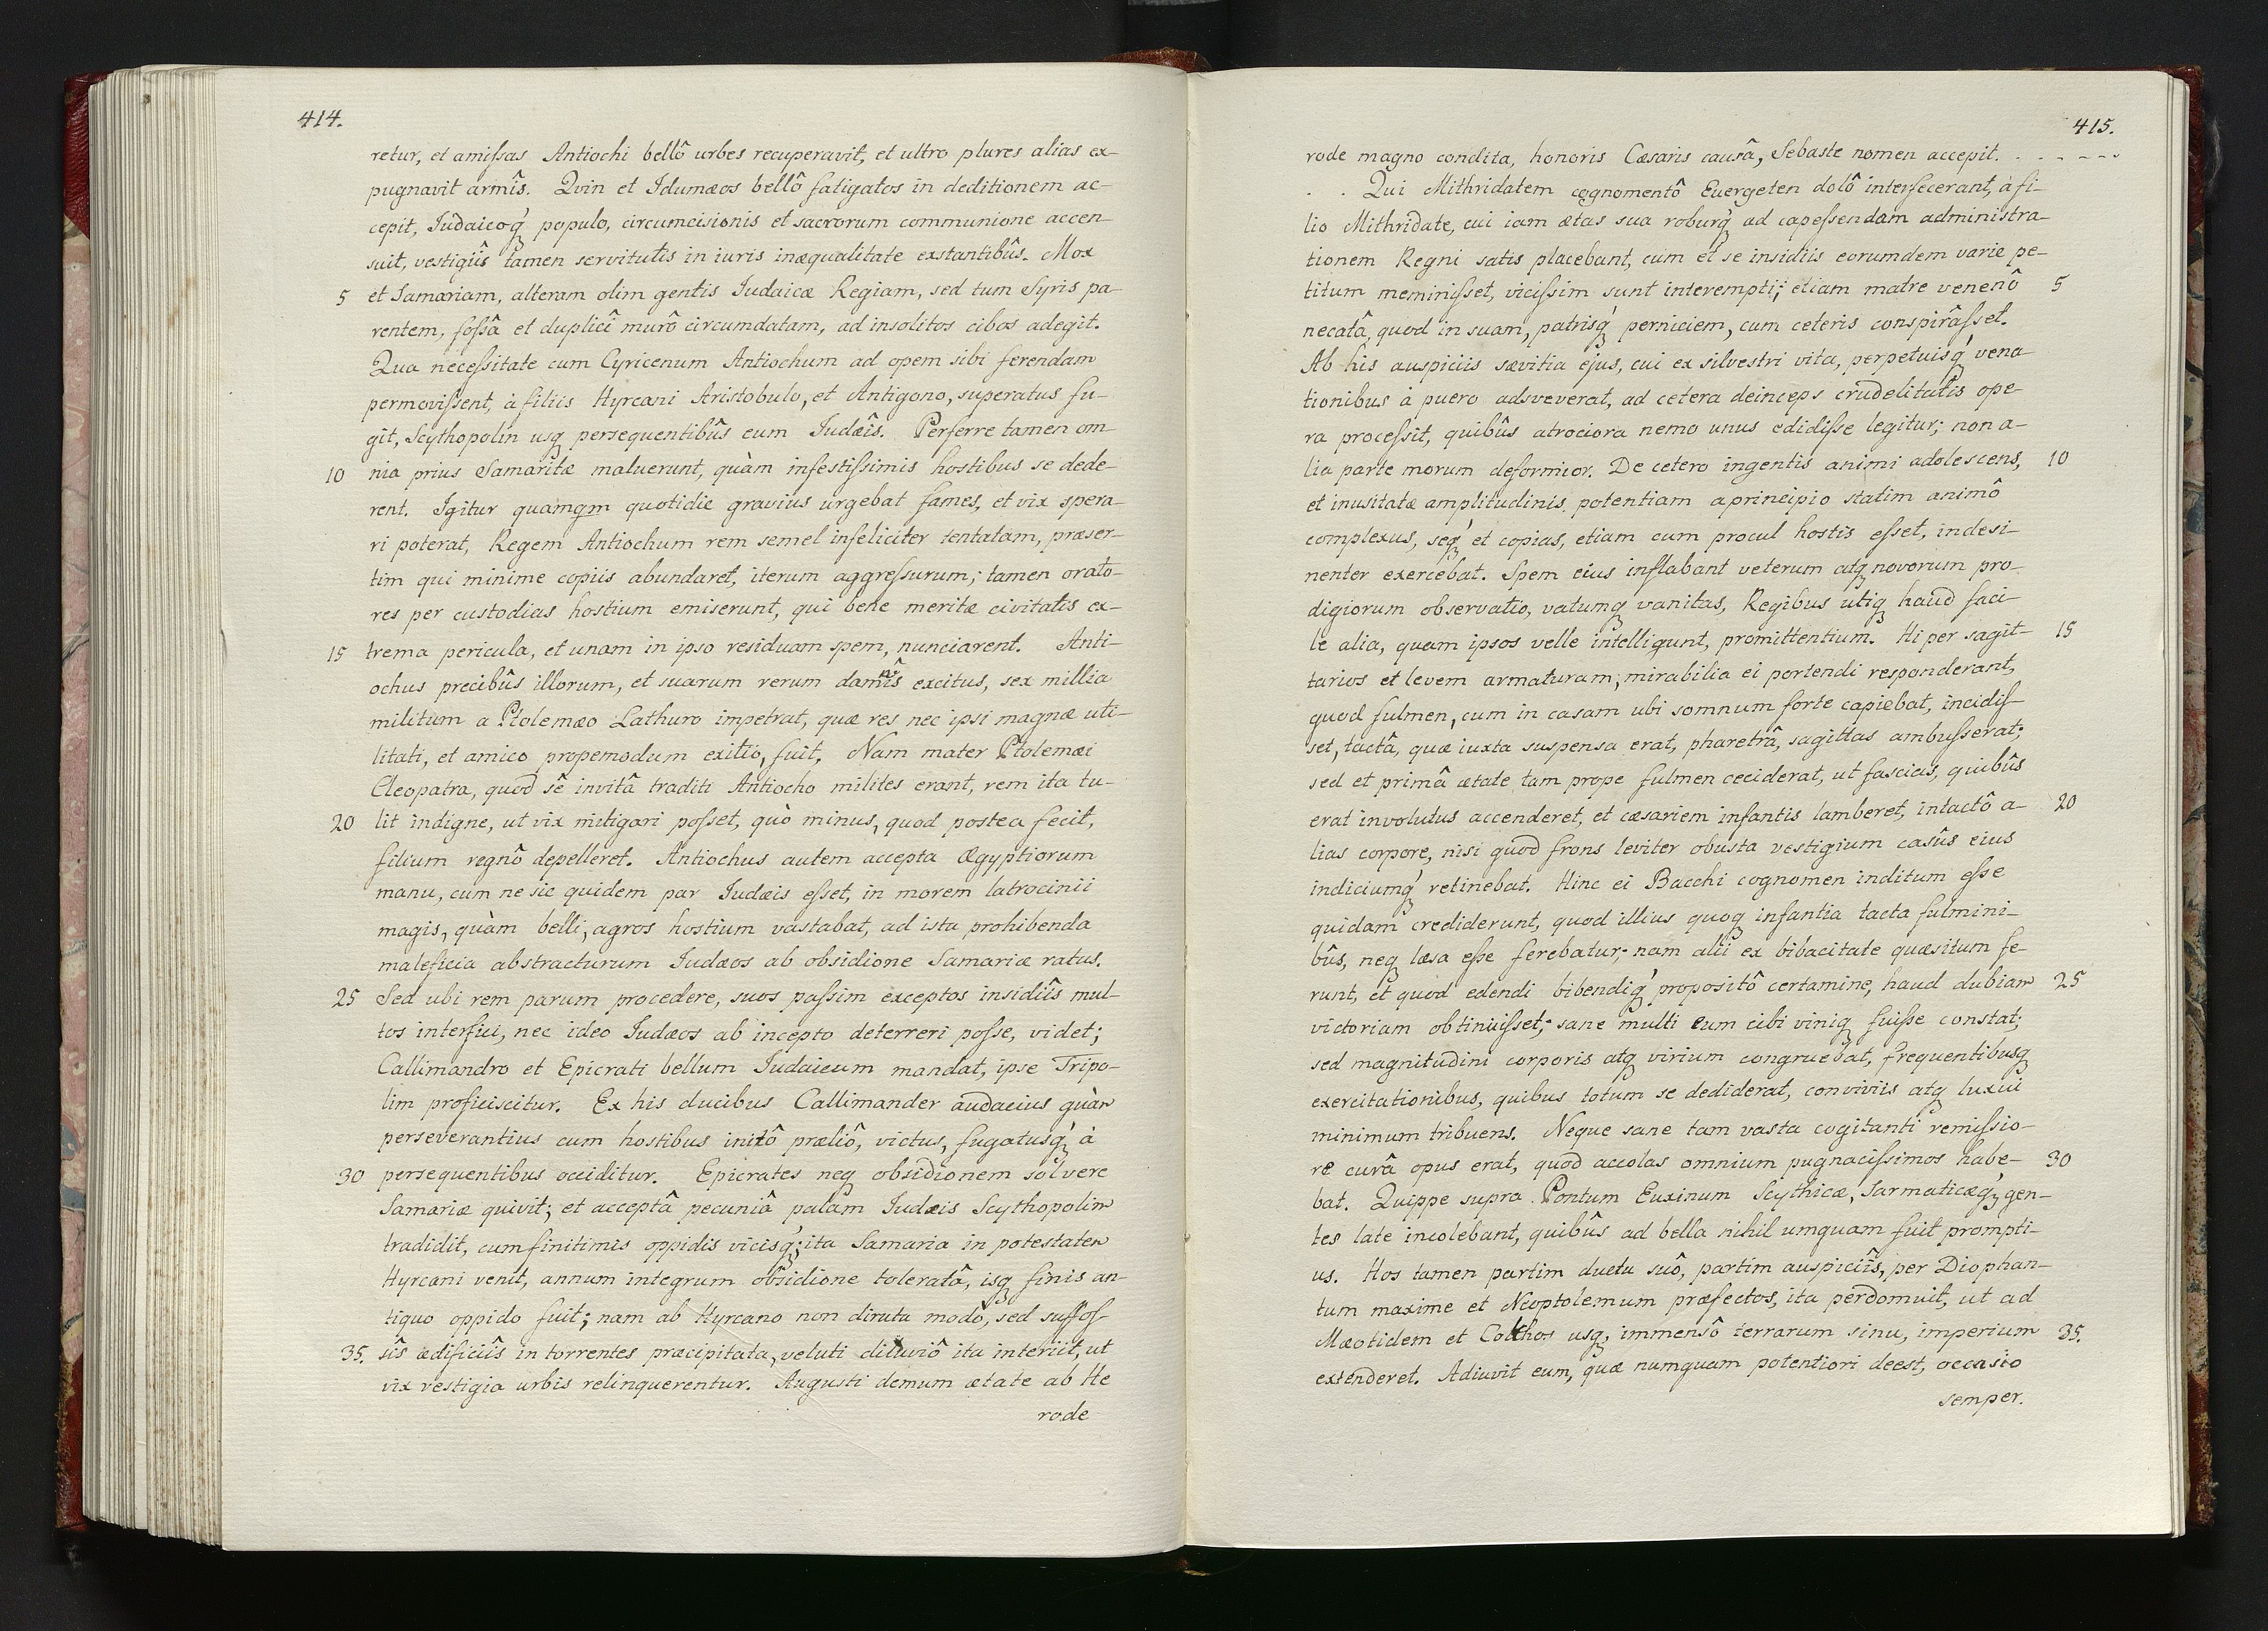 414.
retur, et amiſsas Antiochi bellô urbes recuperavit, et ultro plures alias ex-
pugnavit armîs. Qvin et Idumæos bellô fatigatos in deditionem ac-
cepit, Iudaicoq́ populo, circumcisionis et sacrorum communione accen-
suit, vestigiîs tamen servitutis in iuris inæqualitate exstantibûs. Mox
5 et Samariam, alteram olim gentis Iudaicæ Regiam, sed tum Syris pa-
rentem, foſsâ et duplicî murô circumdatam, ad insolitos cibos adegit.
Qua neceſsitate cum Cyricenum Antiochum ad opem sibi ferendam
permoviſsent, à filiis Hyrcani Aristobulo, et Antigono, superatus fu-
git, Scythopolin usq persequentibûs eum Iudæîs. Perferre tamen om-
10 nia prius Samaritæ maluerunt, quàm infestiſsimis hostibus se dede-
rent. Igitur quamqm quotidie gravius urgebat fames, et vix spera-
ri poterat, Regem Antiochum rem semel infeliciter tentatam, præser-
tim qui minime copiis abundaret, iterum aggreſsurum; tamen orato-
res per custodias hostium emiserunt, qui bene meritæ civitatis ex-
15 trema pericula, et unam in ipso residuam spem, nunciarent. Anti-
ochus precibûs illorum, et suarum rerum damnîs excitus, sex millia
militum a Ptolemæo Lathuro impetrat, quæ res nec ipsi magnæ uti-
litati, et amico propemodum exitio, fuit. Nam mater Ptolemæi
Cleopatra, quod sê invitâ traditi Antiocho milites erant, rem ita tu-
20 lit indigne, ut vix mitigari poſset, quò minus, quod postea fecit,
filium regnô depelleret. Antiochus autem accepta Ægyptiorum
manu, cum ne sic quidem par Iudæis eſset, in morem latrocinii
magis, quàm belli, agros hostium vastabat, ad ista prohibenda
maleficia abstracturum Iudæos ab obsidione Samariæ ratus.
25 Sed ubi rem parum procedere, suos paſsim exceptos insidiîs mul-
tos interfici, nec ideo Iudæos ab incepto deterreri poſse, videt;
Callimandro et Epicrati bellum Iudaicum mandat, ipse Tripo-
lim proficiscitur. Ex his ducibus Callimander audacius quàm
perseverantius cum hostibus initô præliô, victus, fugatusq́ à
30 persequentibus occiditur. Epicrates neq obsidionem solvere
Samariæ quivit; et acceptâ pecuniâ palam Iudæis Scythopolim
tradidit, cum finitimis oppidis vicisq́; ita Samaria in potestatem
Hyrcani venit, annum integrum obsidione toleratâ, isq finis an-
tiquo oppido fuit; nam ab Hyrcano non diruta modò, sed suffoſ-
35. sîs ædificiîs in torrentes præcipitata, veluti diluviô ita interiit, ut
vix vestigia urbis relinquerentur. Augusti demum ætate ab He
rode
415.
rode magno condita, honoris Cæsaris causâ, Sebaste nomen accepit. . - - - - -
. . Qui Mithridatem cognomentô Euergeten dolô interfecerant, à fi-
lio Mithridate, cui iam ætas sua roburq́ ad capeſsendam administra-
tionem Regni satis placebant, cum et se insidiis eorumdem varie pe-
titum meminiſset, viciſsim sunt interempti; etiam matre venenô 5
necatâ, quod in suam, patrisq́ perniciem, cum ceteris conspirâſset.
Ab his auspiciis sævitia ejus, cui ex silvestri vita, perpetuisq́ vena
tionibus à puero adsveverat, ad cetera deinceps crudelitatis ope-
ra proceſsit, quibûs atrociora nemo unus edidiſse legitur; non a-
lia parte morum deformior. De cetero ingentis animi adolescens, 10
et inusitatæ amplitudinis potentiam a principio statim animô
complexus, seq́ et copias, etiam cum procul hostis eſset, indesi-
nenter exercebat. Spem eius inflabant veterum atq novorum pro-
digiorum observatio, vatumq vanitas, Regibus utiq haud faci-
le alia, quam ipsos velle intelligunt, promittentium. Hi per sagit- 15
tarios et levem armaturam, mirabilia ei portendi responderant,
quod fulmen, cum in casam ubi somnum forte capiebat, incidiſ-
set, tactâ, quæ iuxta suspensa erat, pharetrâ, sagittas ambuſserat;
sed et primâ ætate tam prope fulmen ceciderat, ut fascias, quibûs
erat involutus accenderet, et cæsariem infantis lamberet, intactô a- 20
lias corpore, nisi quod frons leviter obusta vestigium casûs eius
indiciumq́ retinebat. Hinc ei Bacchi cognomen inditum eſse
quidam crediderunt, quod illius quoq infantia tacta fulmini-
bûs, neq læsa eſse ferebatur; nam alii ex bibacitate quæsitum fe-
runt, et quod edendi bibendiq́ propositô certamine, haud dubiam 25
victoriam obtinuiſset; sane multi eum cibi viniq fuiſse constat;
sed magnitudini corporis atq virium congruebat, frequentibusq
exercitationibus, quibus totum se dediderat, conviviis atq luxui
minimum tribuens. Neque sane tam vasta cogitanti remiſsio-
re curâ opus erat, quod accolas omnium pugnaciſsimos habe- 30
bat. Quippe supra Pontum Euxinum Scythicæ, Sarmaticæq́, gen-
tes late incolebant, quibûs ad bella nihil umquam fuit prompti-
us. Hos tamen partim ductu suô, partim auspiciîs, per Diophan-
tum maxime et Neoptolemum præfectos, ita perdomuit, ut ad
Mæotidem et Colchos usq, immensô terrarum sinu, imperium 35.
extenderet. Adiuvit eum, quæ numquam potentiori deest, occasio
semper.